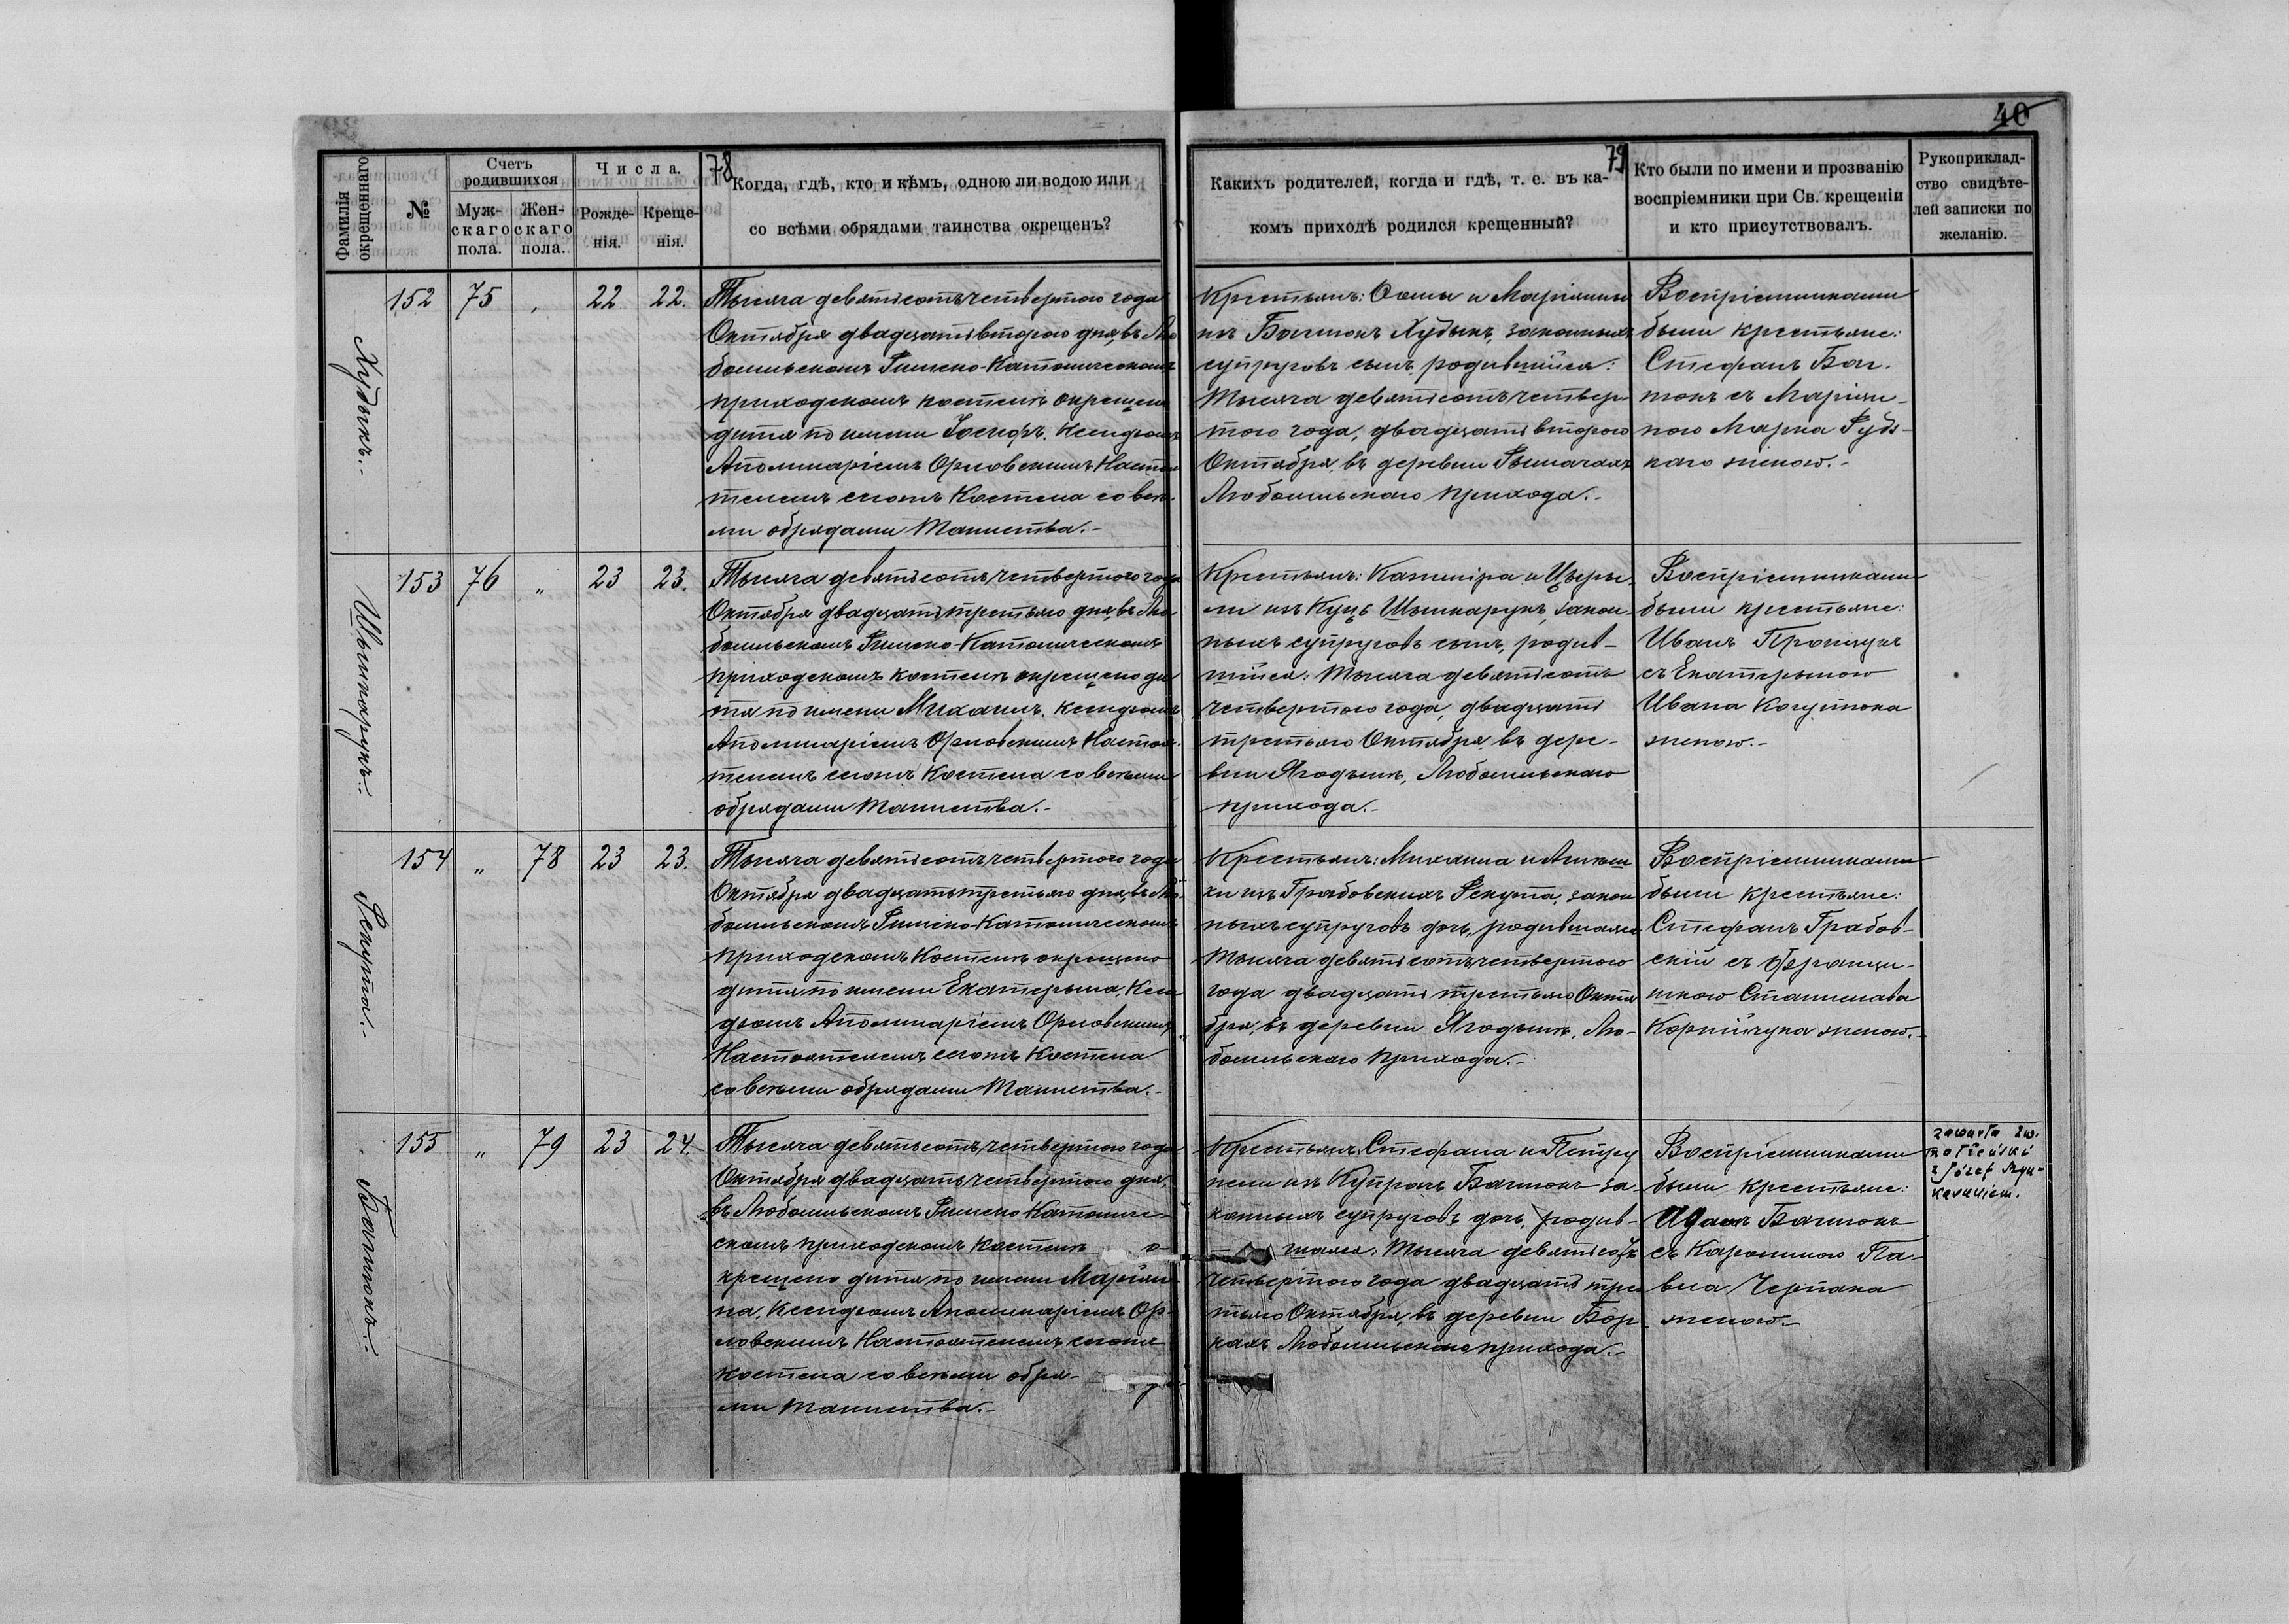 40
78
79
Фамилія окрещеннаго
№
Счетъ родившихся
Муж-скаго пола.
Жен-скаго пола.
Числа.
Рожде-нія.
Креще-нія.
Когда, гдѣ, кто и кѣмъ, одною ли водою или
со всѣми обрядами таинства окрещенъ?
Какихъ родителей, когда и гдѣ, т. е. въ ка-
комъ приходѣ родился крещенный?
Кто были по имени и прозванію
воспріемники при Св. крещеніи
и кто присутствовалъ.
Рукоприклад-
ство свидѣте-
лей записки по
желанію.
Худыкъ.-
152 75 " 22 22.
Тысяча девятьсотъ четвертого года
Октября двадцать второго дня, въ Лю
бомльскомъ Римско-Католическомъ
приходскомъ костелѣ окрещено
дитя по имени Іосифъ. Ксендзомъ
Аполинаріемъ Орловскимъ Настоя
телемъ сегожъ Костела со всѣ-
ми обрядами Таинства.-
Крестьянъ: Ѳомы и Маріянны
изъ Бачтокъ Худыкъ, законныхъ
супруговъ сынъ, родившійся:
Тысяча девятьсотъ четвер-
того года, двадцать второго
Октября, въ деревни Рымачахъ
Любомльскаго прихода.-
Воспріемниками
были крестьяне:
Стефанъ Бач-
токъ съ Маріян-
ною Марка Руд-
каго женою.-
153 76 " 23 23.
Тысяча девятьсотъ четвертого года
Октября двадцать третьяго дня, въ Лю-
бомльскомъ Римско-Католическомъ
приходскомъ костелѣ окрещено ди
тя по имени Михаилъ. Ксендзомъ
Аполинаріемъ Орловскимъ Настоя-
телемъ сегожъ Костела со всѣми
обрядами Таинства.-
Крестьянъ: Казиміра и Цыры-
ли изъ Куць закон-
ныхъ супруговъ сынъ, родив-
шійся: Тысяча девятьсотъ
четвертого года, двадцать
третьяго Октября, въ дерев-
вни Ягодынѣ, Любомльскаго
прихода.-
Воспріемниками
были крестьяне:
Иванъ
съ Екатерыною
Ивана
женою.-
Рекута.-
154 " 78 23 23.
Тысяча девятьсотъ четвертого года
Октября двадцать третьяго дня, въ Лю-
бомльскомъ Римско-Католическомъ
приходскомъ Костелѣ окрещено
дитя по имени Екатерына, Ксен
дзомъ Аполинаріемъ Орловскимъ
Настоятелемъ сегожъ Костела
со всѣми обрядами Таинства.-
Крестьянъ: Михаила и
изъ Грабовскихъ Рекута, закон
ныхъ супруговъ дочь, родившаяся
Тысяча девятьсотъ четвертого
года двадцать третьяго Октя
бря, въ деревни Ягодынѣ, Лю-
бомльскаго прихода.-
Воспріемниками
были крестьяне:
Стефанъ Грабов-
скій съ Францы-
шкою Станислава
Корнійчука женою.-
Бачтокъ.-
155 " 79 23 24.
Тысяча девятьсотъ четвертого года
Октября двадцать четвертого дня,
въ Любомльскомъ Римско Католиче-
скомъ приходскомъ костелѣ о-
крещено дитя по имени Маріян-
на, Ксендзомъ Аполинаріемъ Ор-
ловскимъ Настоятелемъ сегожъ
Костела со всѣми обря-
ми таинства.-
Крестьянъ Стефана и Петру
нели изъ Купрачъ Бачтокъ за-
конныхъ супруговъ дочь, родив-
шаяся: Тысяча девятьсотъ
четвертого года двадцать тре
тьяго Октября, въ деревни Бор-
кахъ Любомльскаго прихода.-
Воспріемниками
были крестьяне:
Адамъ Бачтокъ
съ Каролиною Па-
вла Черпака
женою.-
zawarła zw.
małżeński
z Józef